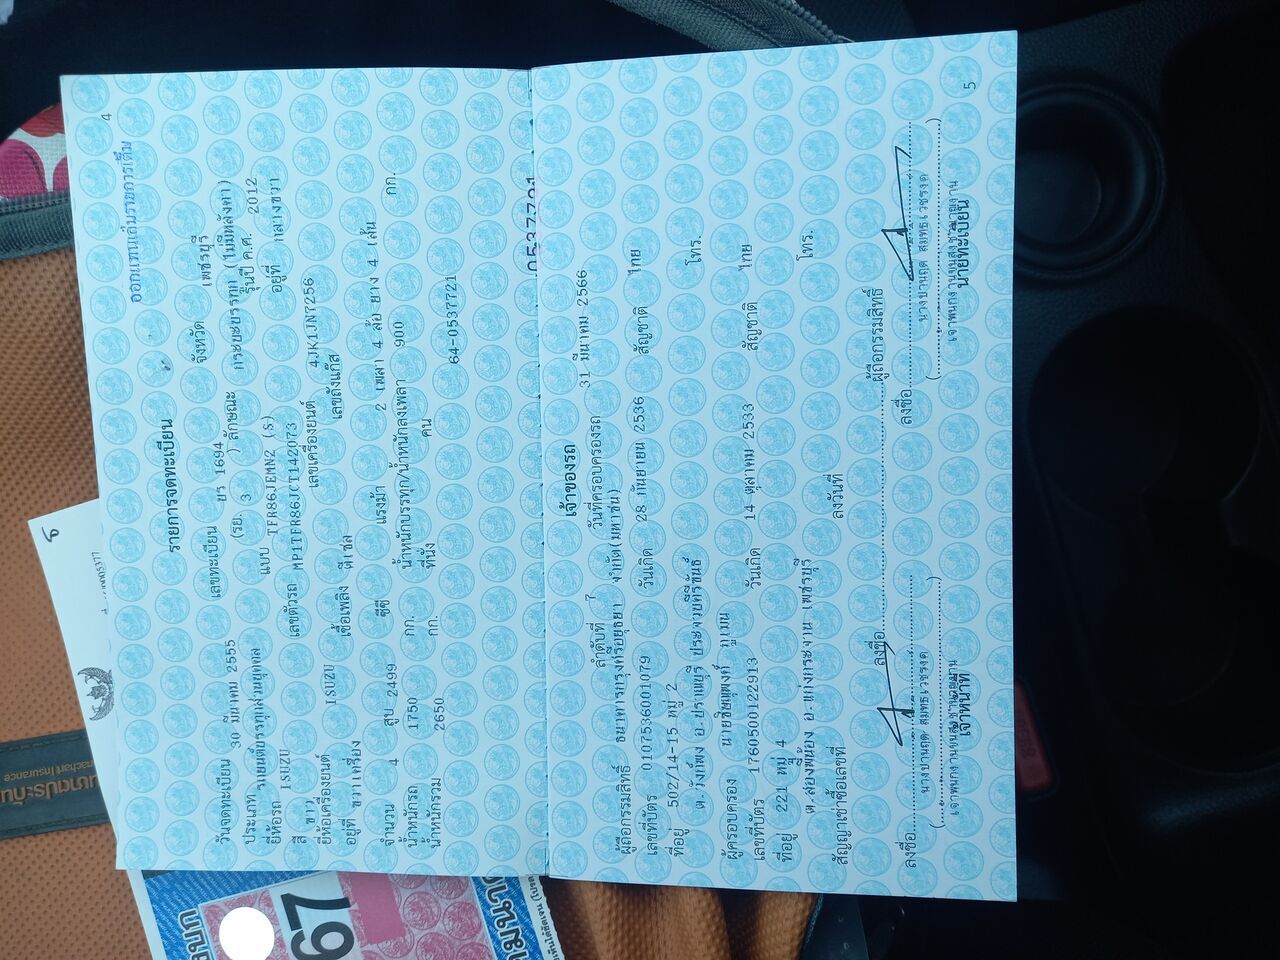 4
ออกแทนเต็มรายการเดิม
รายการจดทะเบียน
วันจดทะเบียน 30 มีนาคม 2555 เลขทะเบียน บร 1694 จังหวัด เพชรบุรี
ประเภท รถยนต์บรรทุกส่วนบุคคล (รย. 3 ) ลักษณะ กระบะบรรทุก (ไม่มีหลังคา)
ยี่ห้อรถ ISUZU แบบ TFR86JEMN2 (S) รุ่นปี ค.ศ. 2012
สี ขาว เลขตัวรถ MP1TFR86JCT142073 อยู่ที่ กลางขวา
ยี่ห้อเครื่องยนต์ ISUZU เลขเครื่องยนต์ 4JK1JN7256
อยู่ที่ ขวาเครื่อง เชื้อเพลิง ดีเซล เลขถังแก๊ส
จำนวน 4 สูบ 2499 ซีซี แรงม้า 2 เพลา 4 ล้อ ยาง 4 เส้น
น้ำหนักรถ 1750 กก. น้ำหนักบรรทุก/น้ำหนักลงเพลา 900 กก.
น้ำหนักรวม 2650 กก. ที่นั่ง คน
64-0537721
เจ้าของรถ
ลำดับที่ 7 วันที่ครอบครองรถ 31 มีนาคม 2566
ผู้ถือกรรมสิทธิ์ ธนาคารกรุงศรีอยุธยา จำกัด(มหาชน)
เลขที่บัตร 0107536001079 วันเกิด 28 กันยายน 2536 สัญชาติ ไทย
ที่อยู่ 502/14-15 หมู่ 2
ต.วังก์พง อ.ปราณบุรี ประจวบคีรีขันธ์ โทร.
ผู้ครอบครอง
เลขที่บัตร 1760500122913 วันเกิด 14 ตุลาคม 2533 สัญชาติ ไทย
ที่อยู่ 221 หมู่ 4
ต.สองพี่น้อง อ.แก่งกระจาน เพชรบุรี โทร.
สัญญาเช่าซื้อเลขที่ ลงวันที่
ลงชื่อ ผู้ถือกรรมสิทธิ์
ลงชื่อ ลงชื่อ
เจ้าพนักงานขนส่งชำนาญงาน เจ้าพนักงานขนส่งชำนาญงาน
เจ้าหน้าที่ นายทะเบียน
5
67